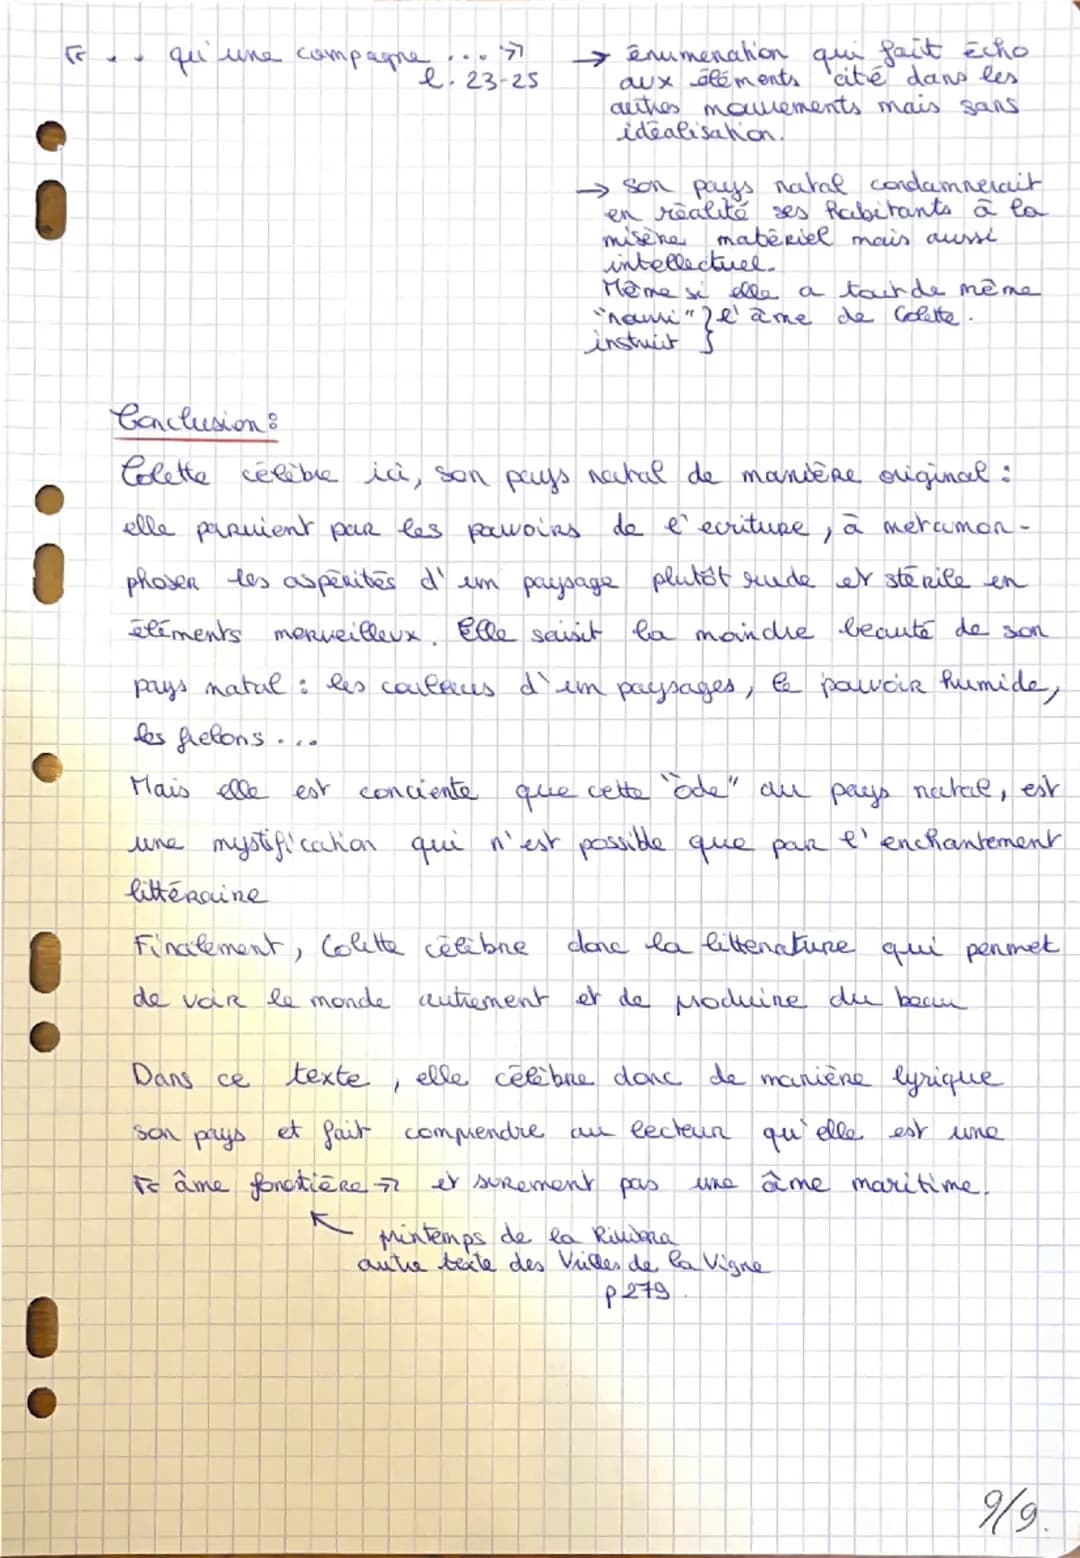 « .. qu'une campagne ... »
l. 23-25
→ énumération qui fait écho
aux éléments cité dans les
autres mouvements mais sans
idéalisation.
→ son pays natal condamnerait
en réalité ses habitants à la
misère matériel mais aussi
intellectuel.
Même si elle a tout de même
"nourri" } l'âme de Colette.
instruit }
Conclusion :
Colette célèbre ici, son pays natal de manière original :
elle parvient par les pouvoirs de l'ecriture, à métamor-
phoser les aspérités d'un paysage plutôt rude et stérile en
éléments merveilleux. Elle saisit la moindre beauté de son
pays natal : les couleurs d'un paysages, le pouvoir humide,
les frelons ...
Mais elle est conciente que cette "ôde" au pays natal, est
une mystification qui n'est possible que par l'enchantement
littéraire
Finalement, Colette célèbre donc la littérature qui permet
de voir le monde autrement et de produire du beau
Dans ce texte, elle célèbre donc de manière lyrique
son pays et fait comprendre au lecteur qu'elle est une
« âme forestière » et surement pas une âme maritime.
↖ printemps de la Riviera
autre texte des Vrilles de la Vigne
p 279.
9/9.